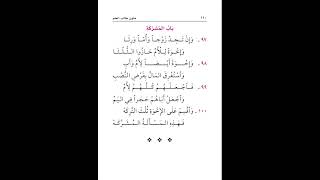 متون طالب العلم
١٤٠
بَابُ المُشَرَّكَةِ
٩٧ . وَإِنْ تَجِدْ زَوْجاً وَأُمّاً وَرِثَا
وَإِخْوَةً لِلأُمِّ حَازُوا الثُّلُثَا
٩٨ . وَإِخْوَةً أَيْضاً لِأُمٍّ وَأَبِ
وَاسْتَغْرَقَ المَالُ بِفَرْضِ النُّصُبِ
٩٩ . فَاجْعَلْهُمُ كُلَّهُمُ لِأُمِّ
وَاجْعَلْ أَبَاهُمْ حَجَراً فِي اليَمِّ
١٠٠ . وَاقْسِمْ عَلَى الإِخْوَةِ ثُلْثَ التَّرِكَهْ
فَهَذِهِ المَسْأَلَةُ المُشَرَّكَهْ